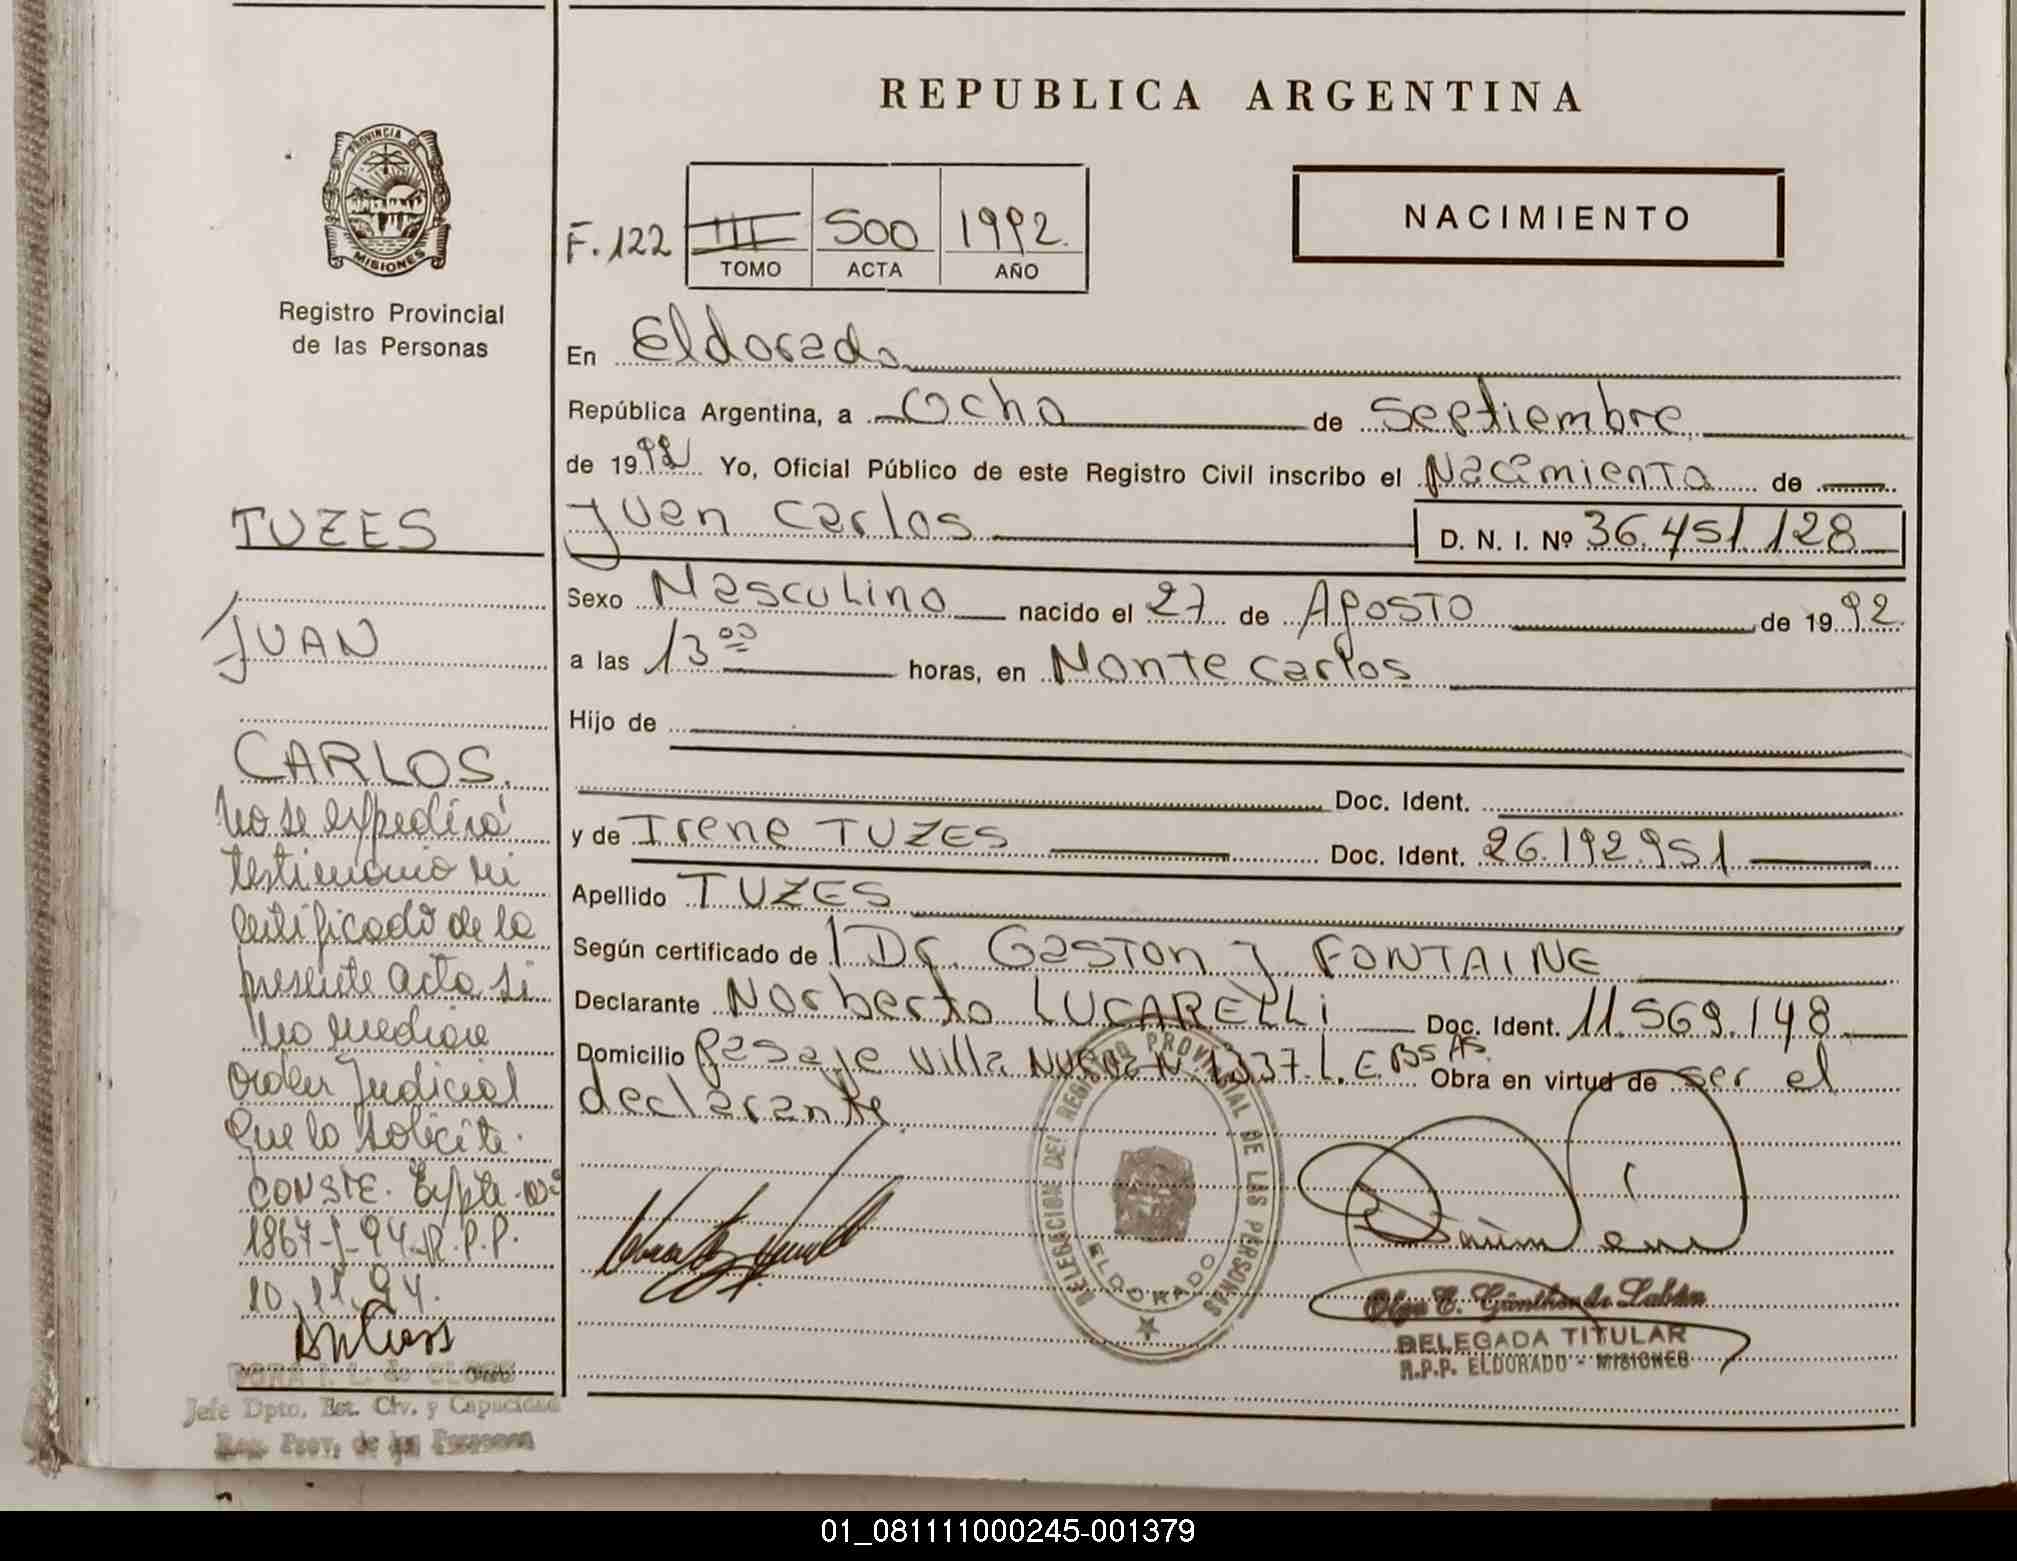 REPUBLICA ARGENTINA
PROVINCIA DE
MISIONES
Registro Provincial
de las Personas
NACIMIENTO
F. 122 III 500 1992.
TOMO ACTA AÑO
En Eldorado
República Argentina, a Ocho de Septiembre
de 1992 Yo, Oficial Público de este Registro Civil inscribo el Nacimiento de
Juan Carlos D. N. I. Nº 36.451.128
Sexo Masculino nacido el 27 de Agosto de 1992.
a las 13 00 horas, en Monte Carlos
Hijo de
Doc. Ident.
y de Irene TUZES Doc. Ident. 26.192.951
Apellido TUZES
Según certificado de Dr. Gaston J. FONTAINE
Declarante Norberto LUCARELLi Doc. Ident. 11.569.148
Domicilio Pasaje Villa 1337. L. E. Bs As. Obra en virtud de ser el
declarante
TUZES
JUAN
CARLOS.
No se expedirá
testimonio ni
certificado de la
presente acta si
no mediare
Orden Judicial
que lo solicite.
CONSTE. Expte. Nº
1867-J-94-R.P.P.
10.11.94.
Jefe Dpto. Est. Civ. y Capacidad
Reg. Prov. de las Personas
DELEGACION DEL REGISTRO PROVINCIAL DE LAS PERSONAS
ELDORADO
Olga E. Günther de Labán
DELEGADA TITULAR
R.P.P. ELDORADO - MISIONES
01_081111000245-001379